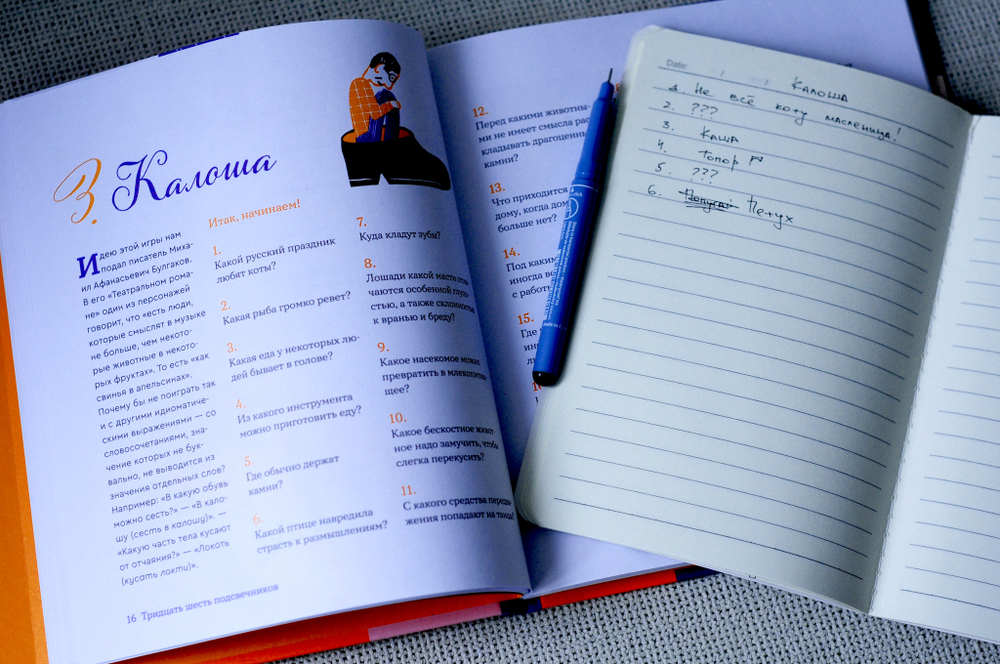 3. Калоша
Идею этой игры нам
подал писатель Миха-
ил Афанасьевич Булгаков.
В его «Театральном рома-
не» один из персонажей
говорит, что «есть люди,
которые смыслят в музыке
не больше, чем некото-
рые животные в некото-
рых фруктах». То есть «как
свинья в апельсинах».
Почему бы не поиграть так
и с другими идиоматиче-
скими выражениями — со
словосочетаниями, зна-
чение которых не бук-
вально, не выводится из
значения отдельных слов?
Например: «В какую обувь
можно сесть?» — «В кало-
шу (сесть в калошу)». —
«Какую часть тела кусают
от отчаяния?» — «Локоть
(кусать локти)».
16 Тридцать шесть подсвечников
Итак, начинаем!
1.
Какой русский праздник
любят коты?
2.
Какая рыба громко ревет?
3.
Какая еда у некоторых лю-
дей бывает в голове?
4.
Из какого инструмента
можно приготовить еду?
5.
Где обычно держат
камни?
6.
Какой птице навредила
страсть к размышлениям?
7.
Куда кладут зубы?
8.
Лошади какой масти отли-
чаются особенной глупо-
стью, а также склонностью
к вранью и бреду?
9.
Какое насекомое можно
превратить в млекопитаю-
щее?
10.
Какое бескостное живот-
ное надо замучить, чтобы
слегка перекусить?
11.
С какого средства передви-
жения попадают на танцы?
12.
Перед какими животны-
ми не имеет смысла рас-
кладывать драгоценные
камни?
13.
Что приходится
дому, когда дом
больше нет?
14.
Под каким
иногда
с работ
15.
Где
Date:
Калоша
1. Не всё коту масленица!
2. ???
3. Каша
4. Топор
5. ???
6. Петух